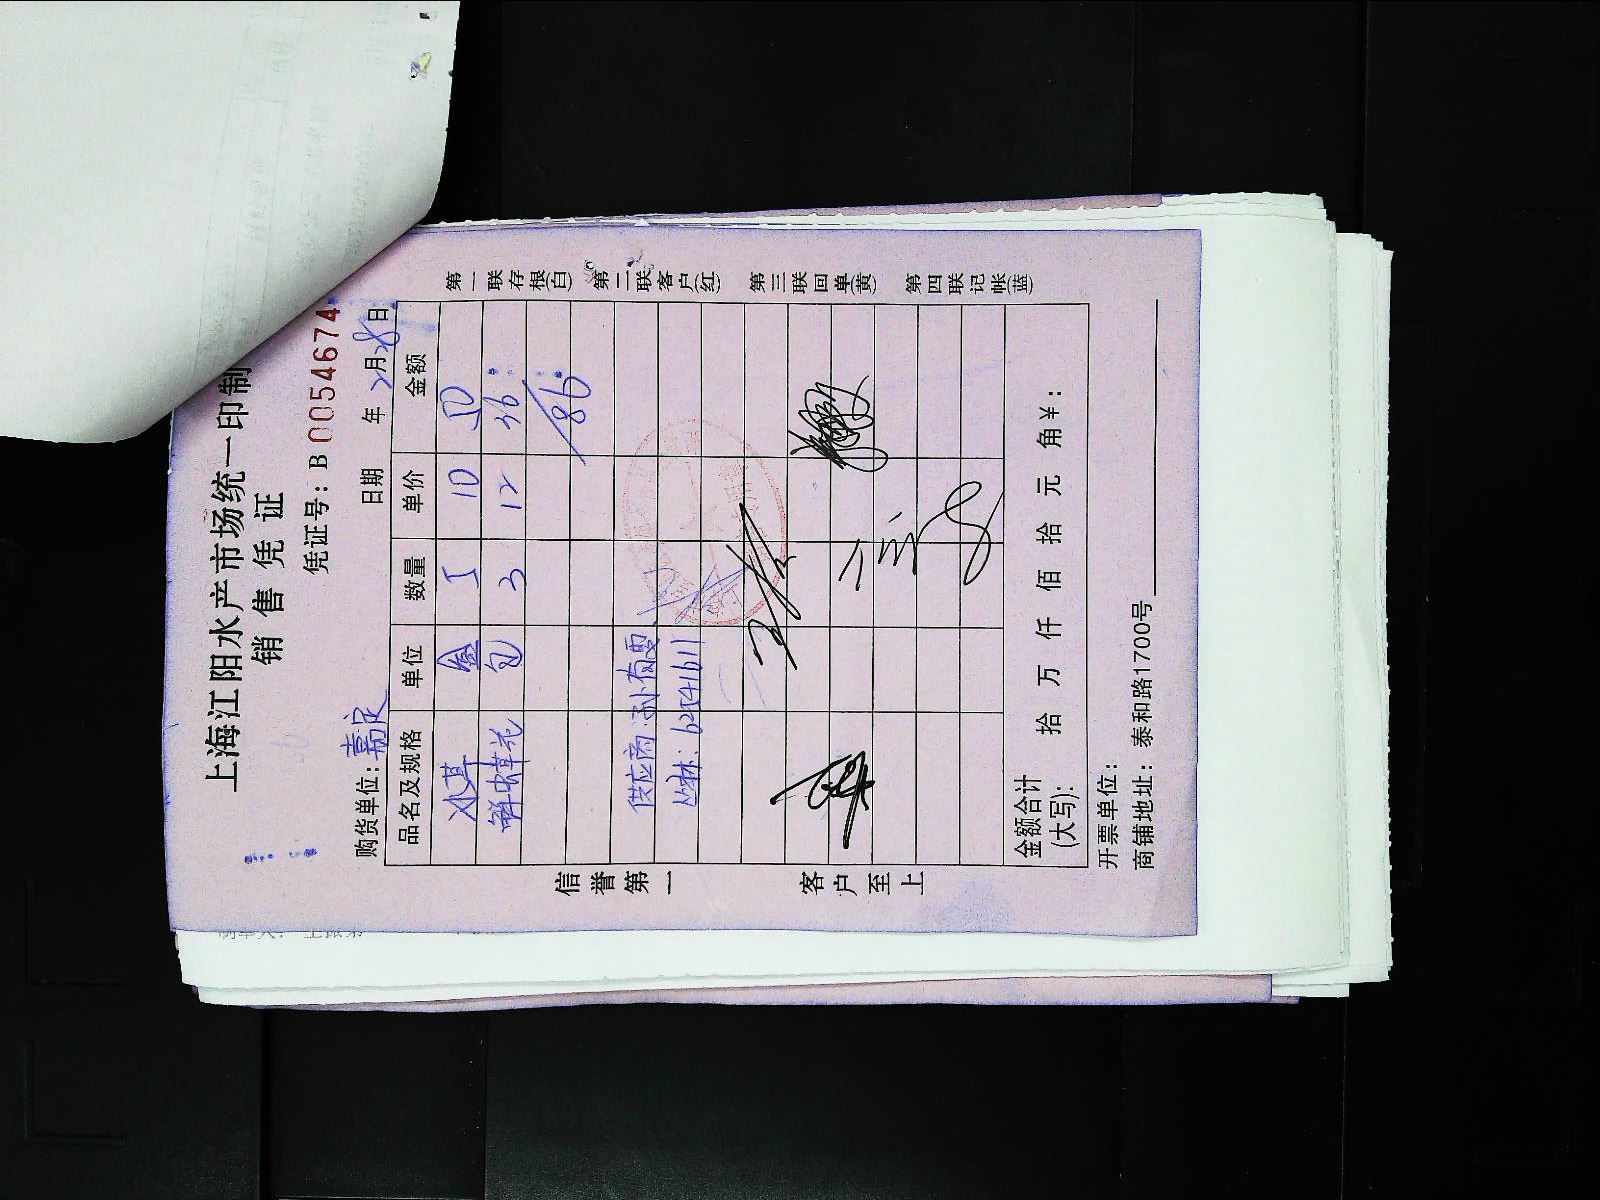 上海江阳水产市场统一印制
销售凭证
凭证号: B 0054674
购货单位: 嘉定 日期 年 2月28日
品名及规格 单位 数量 单价 金额
冰草 盒 5 10 50
鲜蝶花 包 3 12 36
86
供应商: 孙有雷
丛林: 62541611
金额合计
(大写): 拾 万 仟 佰 拾 元 角¥:
开票单位:
商铺地址: 泰和路1700号
信誉第一 客户至上
第一联存根(白) 第二联客户(红) 第三联回单(黄) 第四联记帐(蓝)